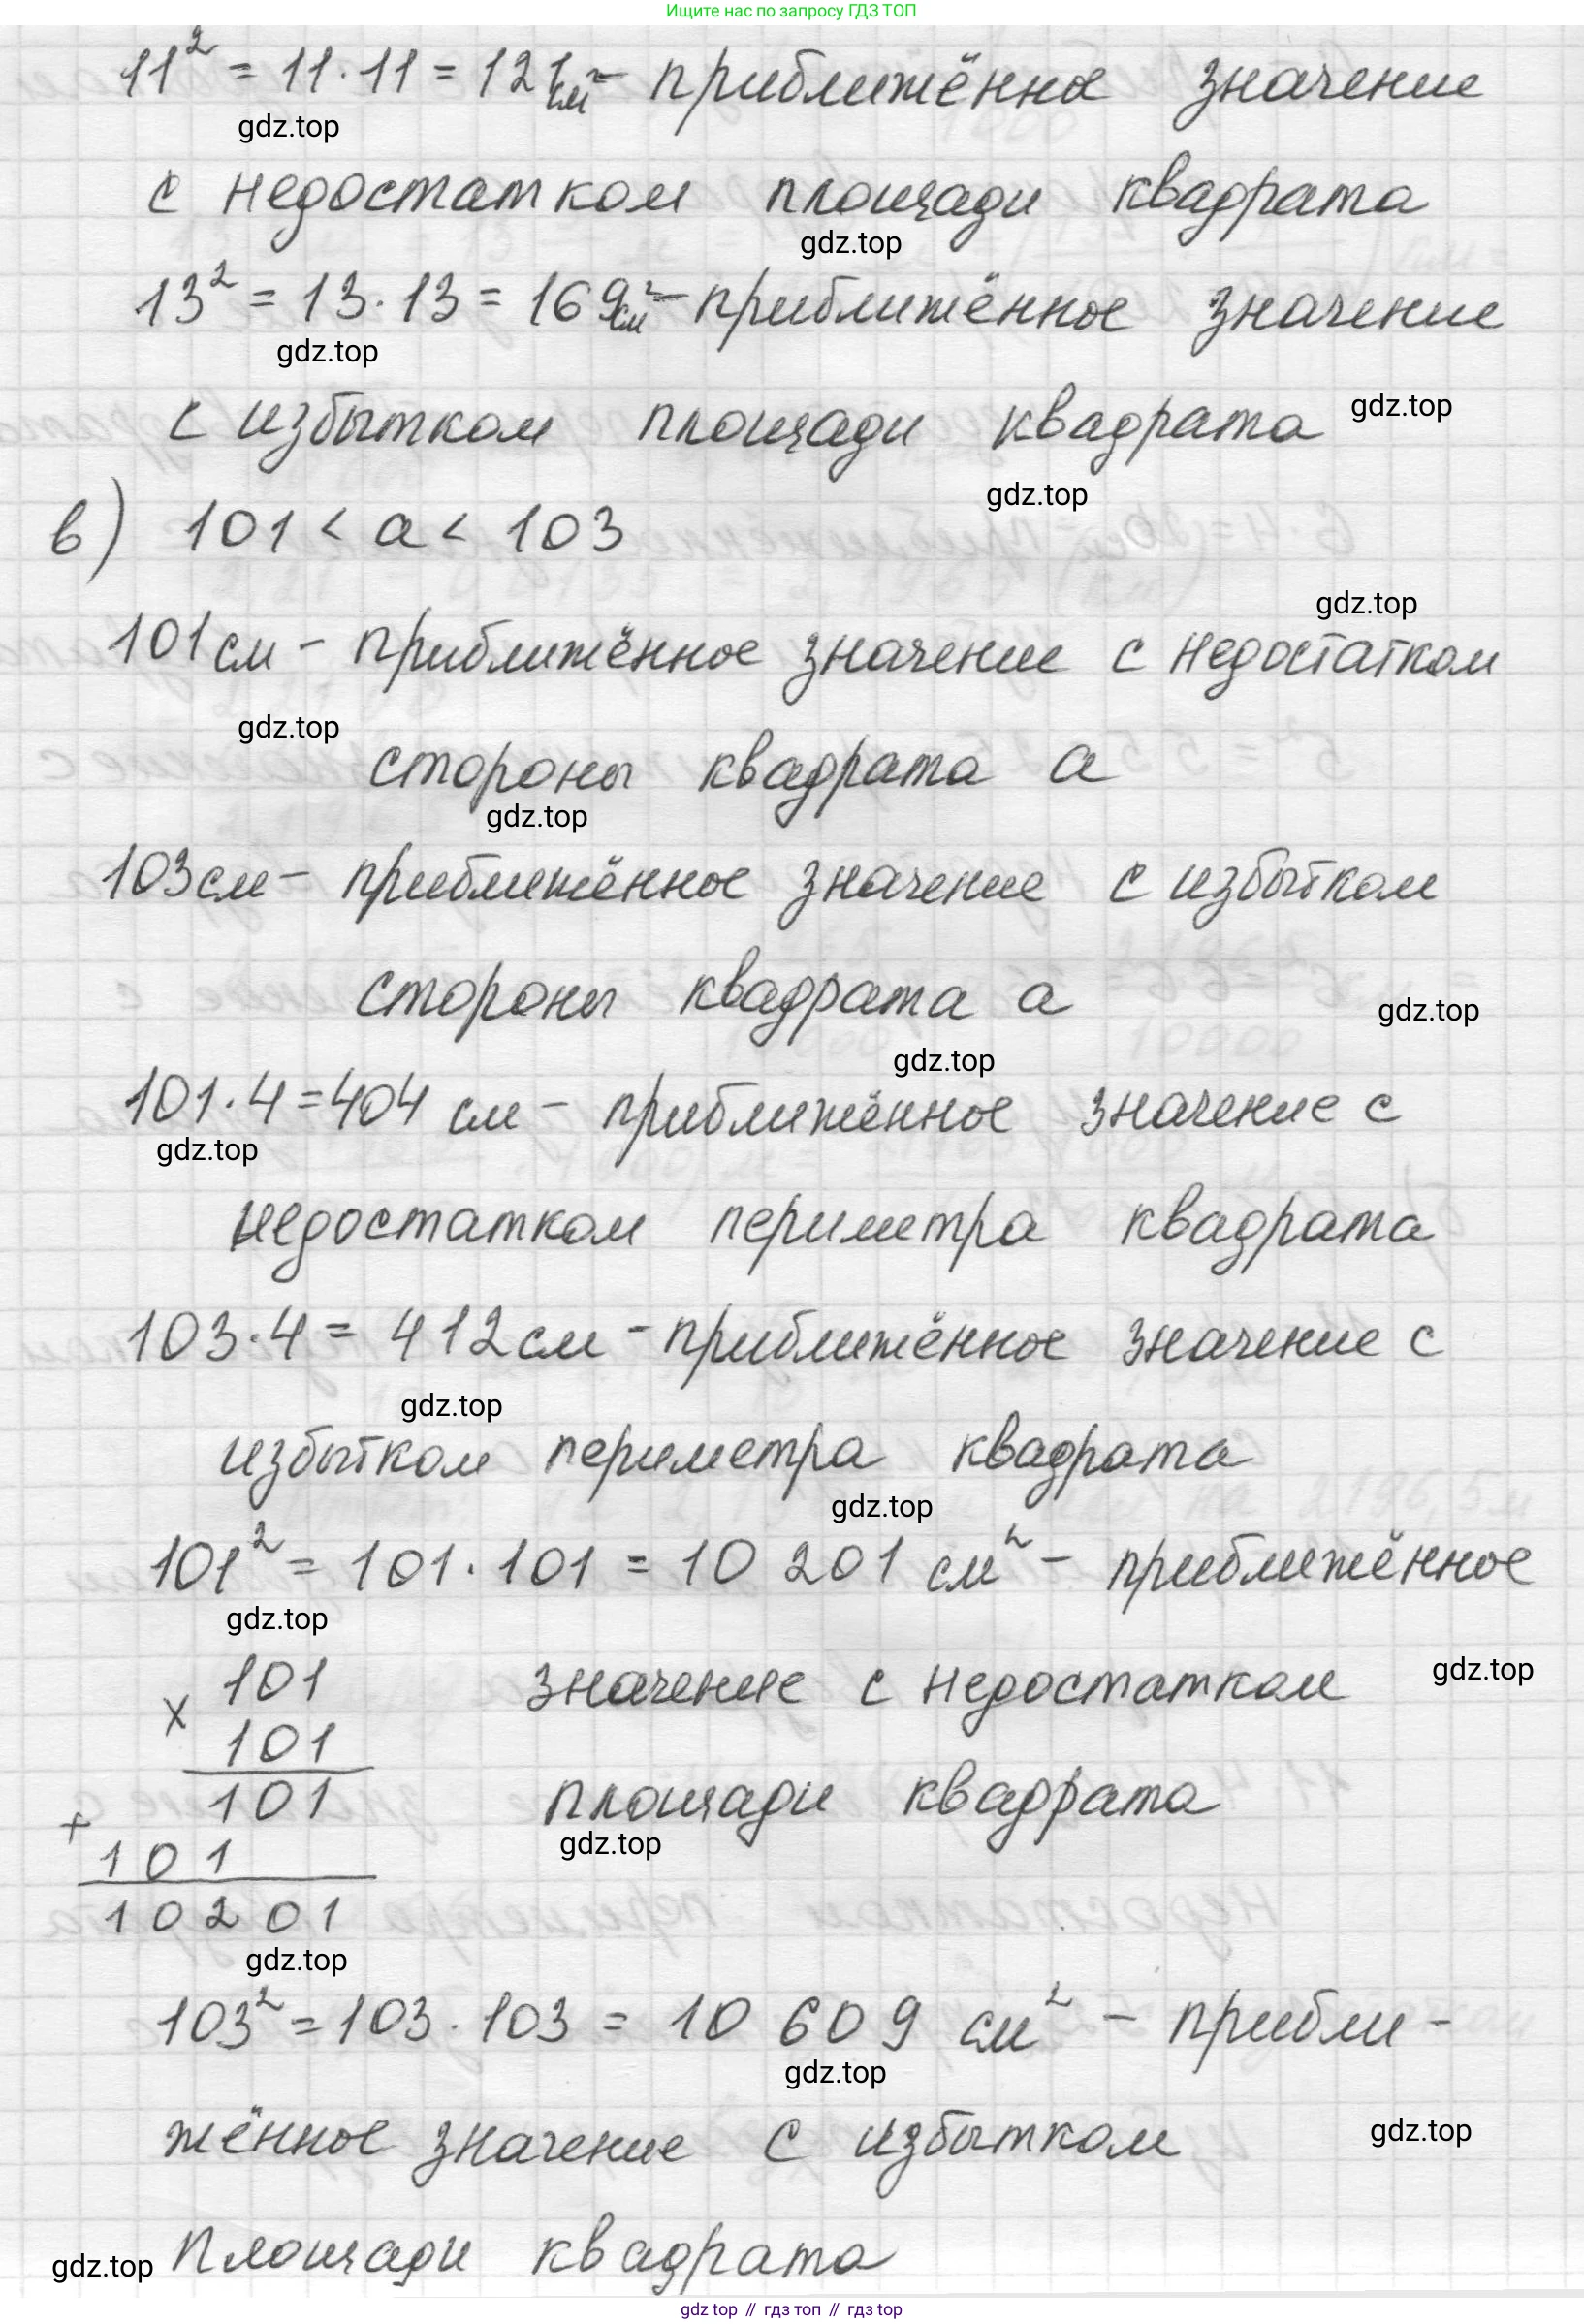 Ищите нас по запросу ГДЗ ТОП
11² = 11·11 = 121 см² – приближённое значение
gdz.top
с недостатком площади квадрата
gdz.top
13² = 13·13 = 169 см² – приближённое значение
gdz.top
с избытком площади квадрата gdz.top
gdz.top
в) 101 < a < 103
gdz.top
101 см – приближённое значение с недостатком
gdz.top
стороны квадрата a
gdz.top
103 см – приближённое значение с избытком
стороны квадрата a gdz.top
gdz.top
101·4=404 см – приближённое значение с
gdz.top
недостатком периметра квадрата
103·4= 412 см – приближённое значение с
gdz.top
избытком периметра квадрата
gdz.top
101² = 101·101 = 10 201 см² – приближённое
gdz.top
101 значение с недостатком gdz.top
x 101
101 площади квадрата
gdz.top
+ 101
10201
gdz.top
103² = 103·103 = 10 609 см² – прибли-
gdz.top
жённое значение с избытком gdz.top
gdz.top площади квадрата
gdz top // гдз топ // гдз top